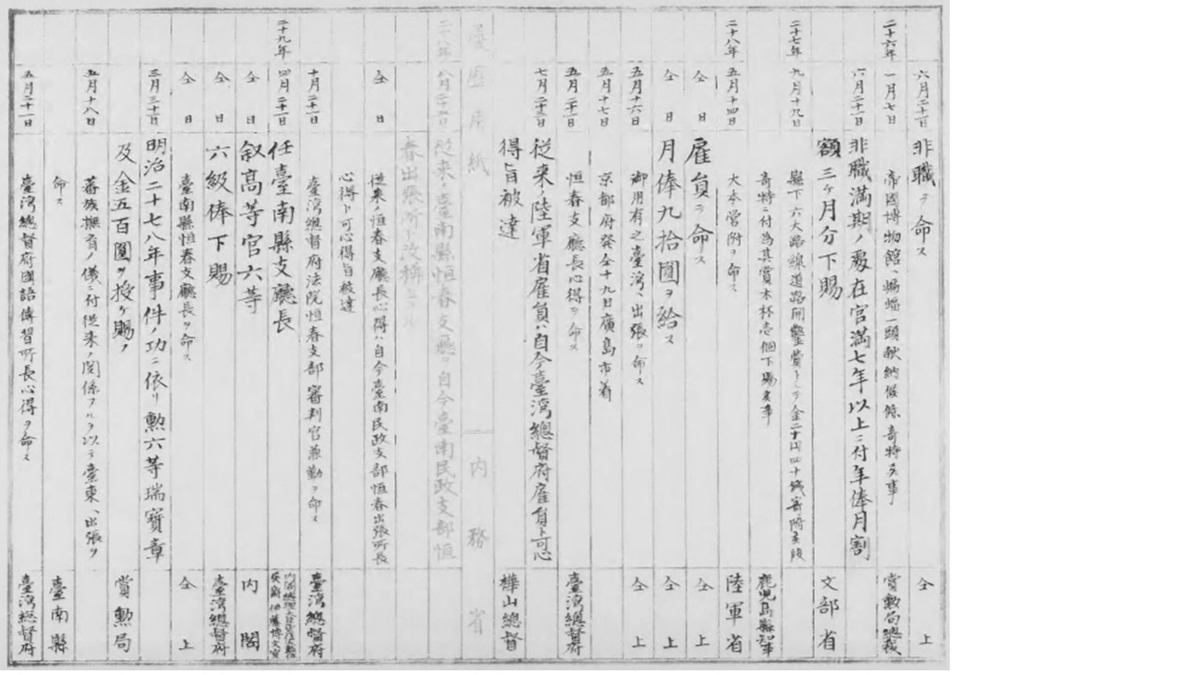 六月二十二日 非職ヲ命ス 仝上
二十六年一月七日 帝國博物館ヘ蝙蝠一頭献納候條奇特ノ事 賞勲局總裁
六月二十二日 非職満期ノ處在官満七年以上ニ付年俸月割
額三ヶ月分下賜 文部省
二十七年九月十九日 縣下六大路線道路開鑿費トシテ金二十四円四十銭寄附候段
奇特ニ付為其賞木杯壱個下賜候事 鹿児島縣知事
二十八年五月十四日 大本営附ヲ命ス 陸軍省
仝日 雇員ヲ命ス 仝上
仝日 月俸九拾圓ヲ給ス 仝上
五月十六日 御用有之臺湾ヘ出張ヲ命ス 仝上
五月十七日 京都府発仝十九日廣島市着
五月二十一日 恒春支廳長心得ヲ命ス 臺湾總督府
七月二十三日 従来ノ陸軍省雇員ハ自今臺湾總督府雇員ト可心
得旨被達 樺山總督
履歴用紙 内務省
二十八年八月二十六日 従来ノ臺南縣恒春支廳ヲ自今臺南民政支部恒
春出張所ト改稱セラル
仝日 従来ノ恒春支廳長心得ハ自今臺南民政支部恒春出張所長
心得ト可心得旨被達
十月二十一日 臺湾總督府法院恒春支部審判官兼勤ヲ命ス 臺湾總督府
二十九年四月二十一日 任臺南縣支廳長
仝日 叙高等官六等 内閣
仝日 六級俸下賜 臺湾總督府
仝日 臺南縣恒春支廳長ヲ命ス 仝上
三月三十日 明治二十七八年事件ノ功ニ依リ勲六等瑞寶章
及金五百圓ヲ授ケ賜フ 賞勲局
五月十八日 蕃族撫育ノ儀ニ付従来ノ関係アルヲ以テ臺東ヘ出張ヲ
命ス 臺南縣
五月二十二日 臺湾總督府國語傳習所長心得ヲ命ス 臺湾總督府